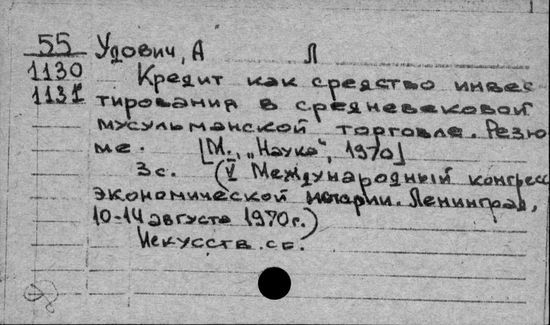 55 Удович, А Л
1130 Кредит как средство инвес
1131 тирования в средневековой
мусульманской торговле. Резю
ме. [М., „Наука", 1970]
3с. (V Международный конгресс
экономической истории. Ленинград,
10-14 августа 1970г.)
Искусств. сб.